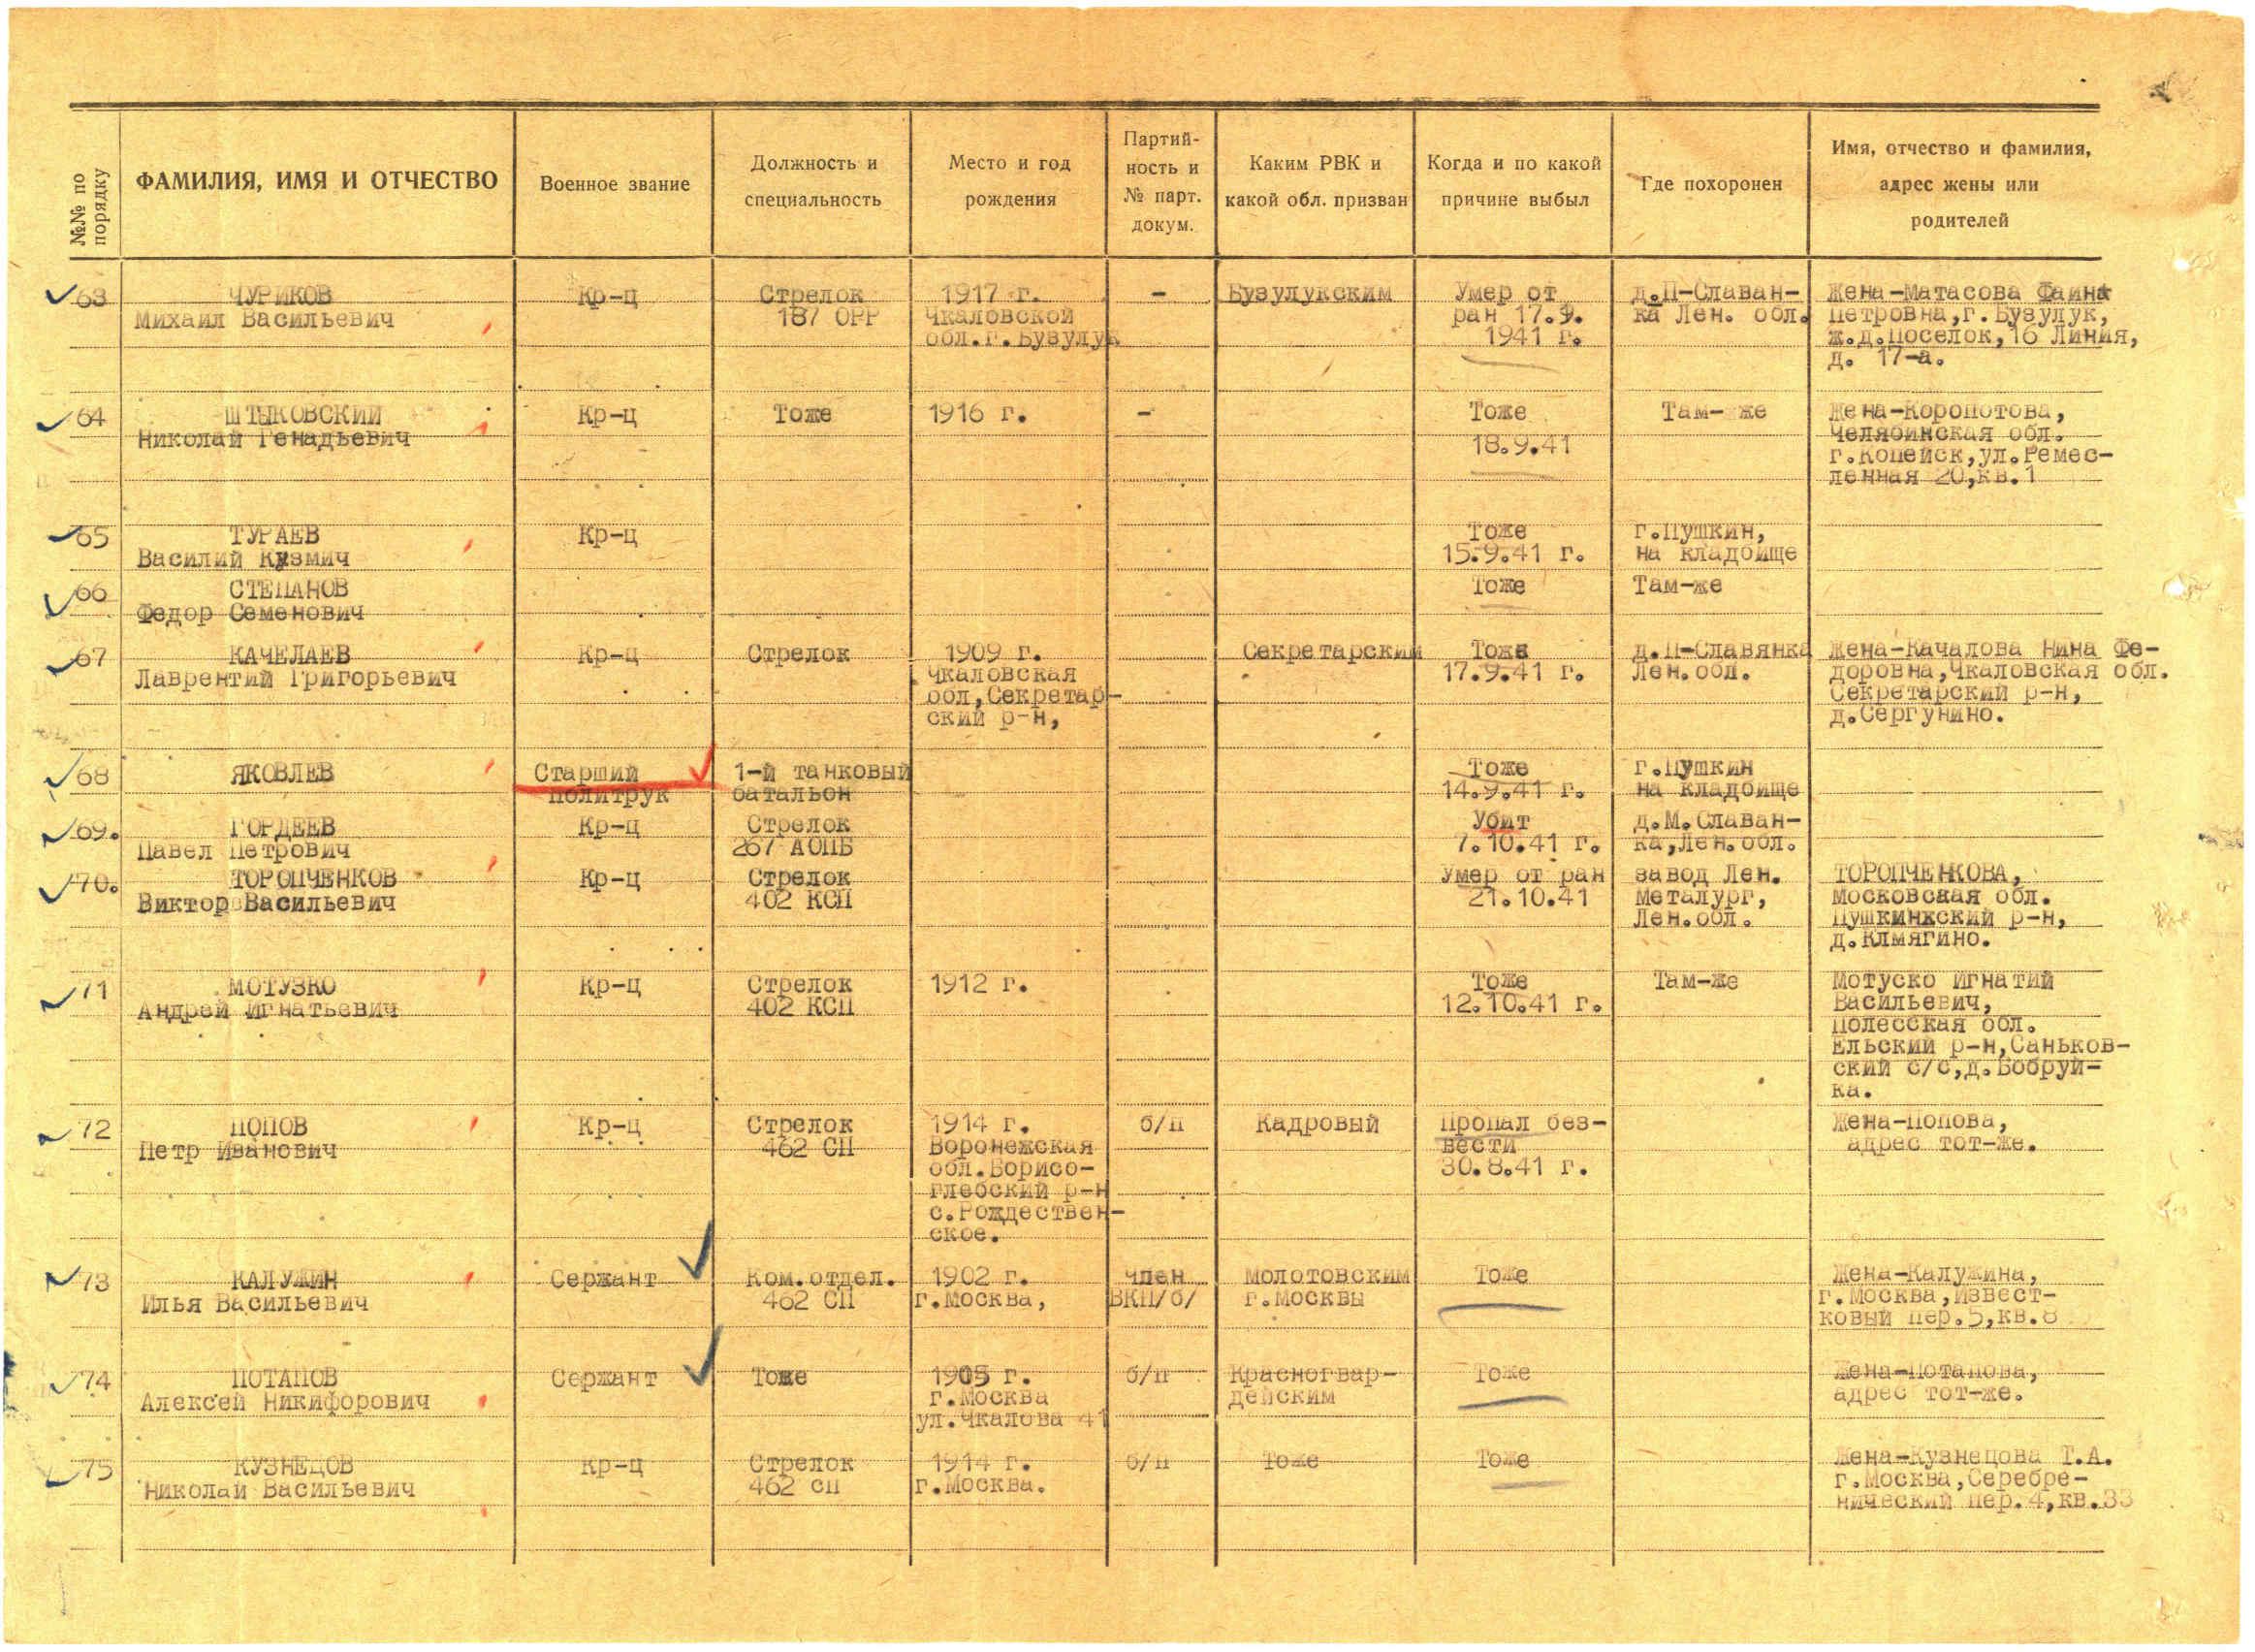 №№ по порядку
ФАМИЛИЯ, ИМЯ И ОТЧЕСТВО
Военное звание
Должность и
специальность
Место и год
рождения
Партий-
ность и
№ парт.
докум.
Каким РВК и
какой обл. призван
Когда и по какой
причине выбыл
Где похоронен
Имя, отчество и фамилия,
адрес жены или
родителей
63 ЧУРИКОВ Кр-ц Стрелок 1917 г. - Бузулукским Умер от д.П-Славан- Жена-Матасова Фаина
Михаил Васильевич 187 ОРР Чкаловской ран 17.9. ка Лен. обл. Петровна,г.Бузулук,
обл.г.Бузулук 1941 г. ж.д.поселок,16 Линия,
д. 17-а.
64 ШТЫКОВСКИЙ Кр-ц Тоже 1916 г. - Тоже Там- же Жена-Коропотова,
Николай Генадьевич 18.9.41 Челябинская обл.
г.Копейск,ул.Ремес-
ленная 20,кв.1
65 ТУРАЕВ Кр-ц Тоже г.Пушкин,
Василий Кузмич 15.9.41 г. на кладбище
66 СТЕПАНОВ Тоже Там-же
Федор Семенович
67 КАЧЕЛАЕВ Кр-ц Стрелок 1909 г. Секретарский Тоже д.П-Славянка Жена-Качалова Нина Фе-
Лаврентий Григорьевич Чкаловская 17.9.41 г. Лен.обл. доровна,Чкаловская обл.
обл,Секретар- Секретарский р-н,
ский р-н, д.Сергунино.
68 ЯКОВЛЕВ Старший 1-й танковый Тоже г.Пушкин
политрук батальон 14.9.41 г. на кладбище
69. ГОРДЕЕВ Кр-ц Стрелок Убит д.М.Славан-
Павел Петрович 267 АОПБ 7.10.41 г. ка,Лен.обл.
70. ТОРОПЧЕНКОВ Кр-ц Стрелок Умер от ран завод Лен. ТОРОПЧЕНКОВА,
Виктор Васильевич 402 КСП 21.10.41 Металург, Московская обл.
Лен.обл. Пушкинкский р-н,
д.Клмягино.
71 МОТУЗКО Кр-ц Стрелок 1912 г. Тоже Там-же Мотуско Игнатий
Андрей Игнатьевич 402 КСП 12.10.41 г. Васильевич,
Полесская обл.
Ельский р-н,Саньков-
ский с/с,д.Бобруй-
ка.
72 ПОПОВ Кр-ц Стрелок 1914 г. б/п Кадровый Пропал без- Жена-Попова,
Петр Иванович 462 СП Воронежская вести адрес тот-же.
обл.Борисо- 30.8.41 г.
глебский р-н
с.Рождествен-
ское.
73 КАЛУЖИН Сержант Ком.отдел. 1902 г. член Молотовским Тоже Жена-Калужина,
Илья Васильевич 462 СП г.Москва, ВКП/б/ г.Москвы г.Москва,Извест-
ковый пер.5,кв.8
74 ПОТАПОВ Сержант Тоже 1905 г. б/п Красногвар- Тоже Жена-Потапова,
Алексей Никифорович г.Москва дейским адрес тот-же.
ул.Чкалова 41
75 КУЗНЕЦОВ Кр-ц Стрелок 1914 г. б/п Тоже Тоже Жена-Кузнецова Т.А.
Николай Васильевич 462 сп г.Москва. г.Москва,Серебре-
нический пер.4,кв.33